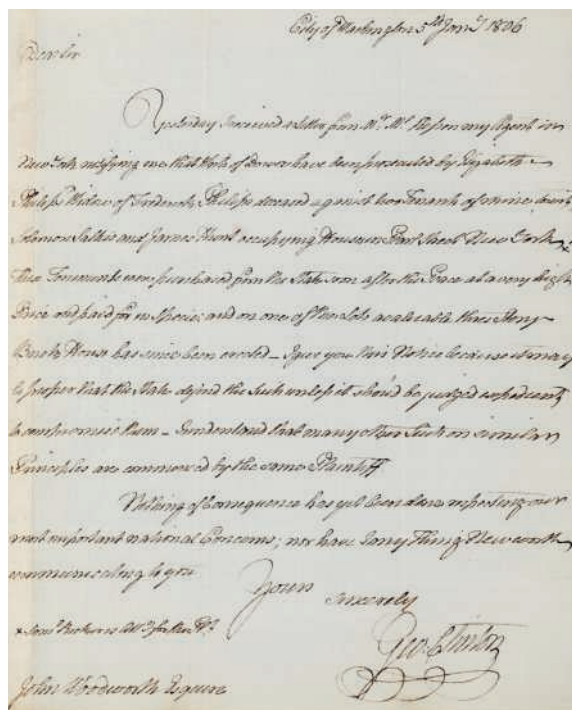 City of Washington 5th Jany. 1806
Dear Sir
Yesterday I received a Letter from Mr. Mc Kesson my Agent in
New York notifying me that Writs of Dower have been prosecuted by Elizabeth
Philips Widow of Frederick Philips deceased against two Tenants of mine
Solomon and James Hunt occupying Houses in Pearl Street New York x
The Tenements were purchased from the State soon after the Peace at a very high
Price and paid for in Specie; and on one of the Lots a valuable three Story
Brick House has since been erected – I give you this Notice because it may
be proper that the State defend the Suits unless it should be judged expedient
to compromise them – I understand that many other Suits on similar
Principles are commenced by the same Plaintiff
Nothing of Consequence has yet been done respecting our
most important national Concerns; nor have I any Thing New worth
communicating to you
Yours
sincerely
Geo: Clinton
John Woodworth Esquire